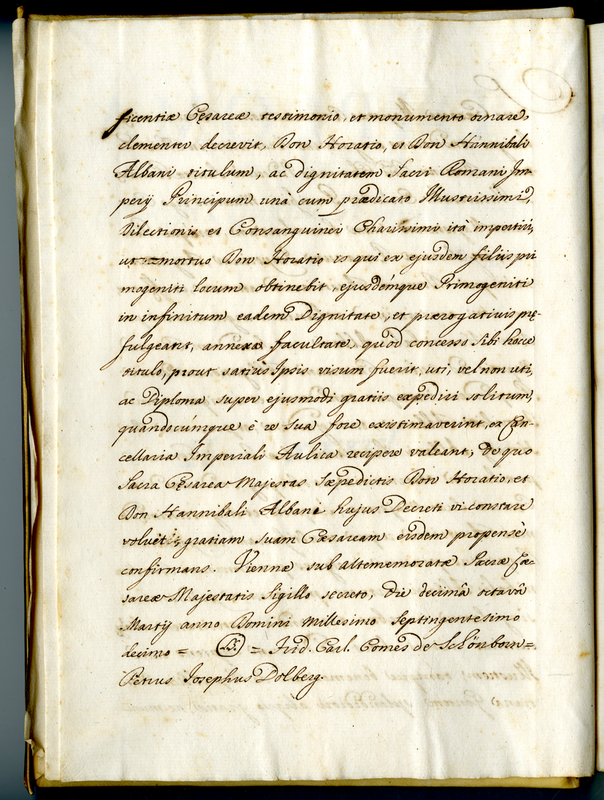 ficentiæ Cęsareæ testimonio, et monumento ornare,
clementer decrevit, Don Horatio, et Don Hannibali
Albani titulum, ac dignitatem Sacri Romani Im-
perij Principum unà cum prædicato Illustrissimi,
Dilectionis et Consanguinei Charissimi ità impertiri,
ut mortuo Don Horatio is qui ex ejusdem filiis pri
mogeniti locum obtinebit, ejusdémque Primogeniti
in infinitum eadem Dignitate, et prærogativis prę-
fulgeant, annexa facultate, quòd concesso sibi hocce
titulo, prout satiùs Ipsis visum fuerit, uti, vel non uti,
ac Diploma super ejusmodi gratiis expediri solitum,
quandocúmque è re sua fore existimaverint, ex Can-
cellaria Imperiali Aulica recipere valeant; de quo
Sacra Cęsarea Majestas Sæpedictis Don Horatio, et
Don Hannibali Albani hujus Decreti vi constare
voluit, gratiam suam Cæsaream eisdem propensè
confirmans. Viennæ sub altememoratæ Sacræ Cæ-
sareæ Majestatis Sigillo secreto, Die decimâ octavâ
Martij anno Domini millesimo Septingentesimo
decimo = L.S. = Frid. Carl. Comes de Schönborn =
Petrus Josephus Dolberg.